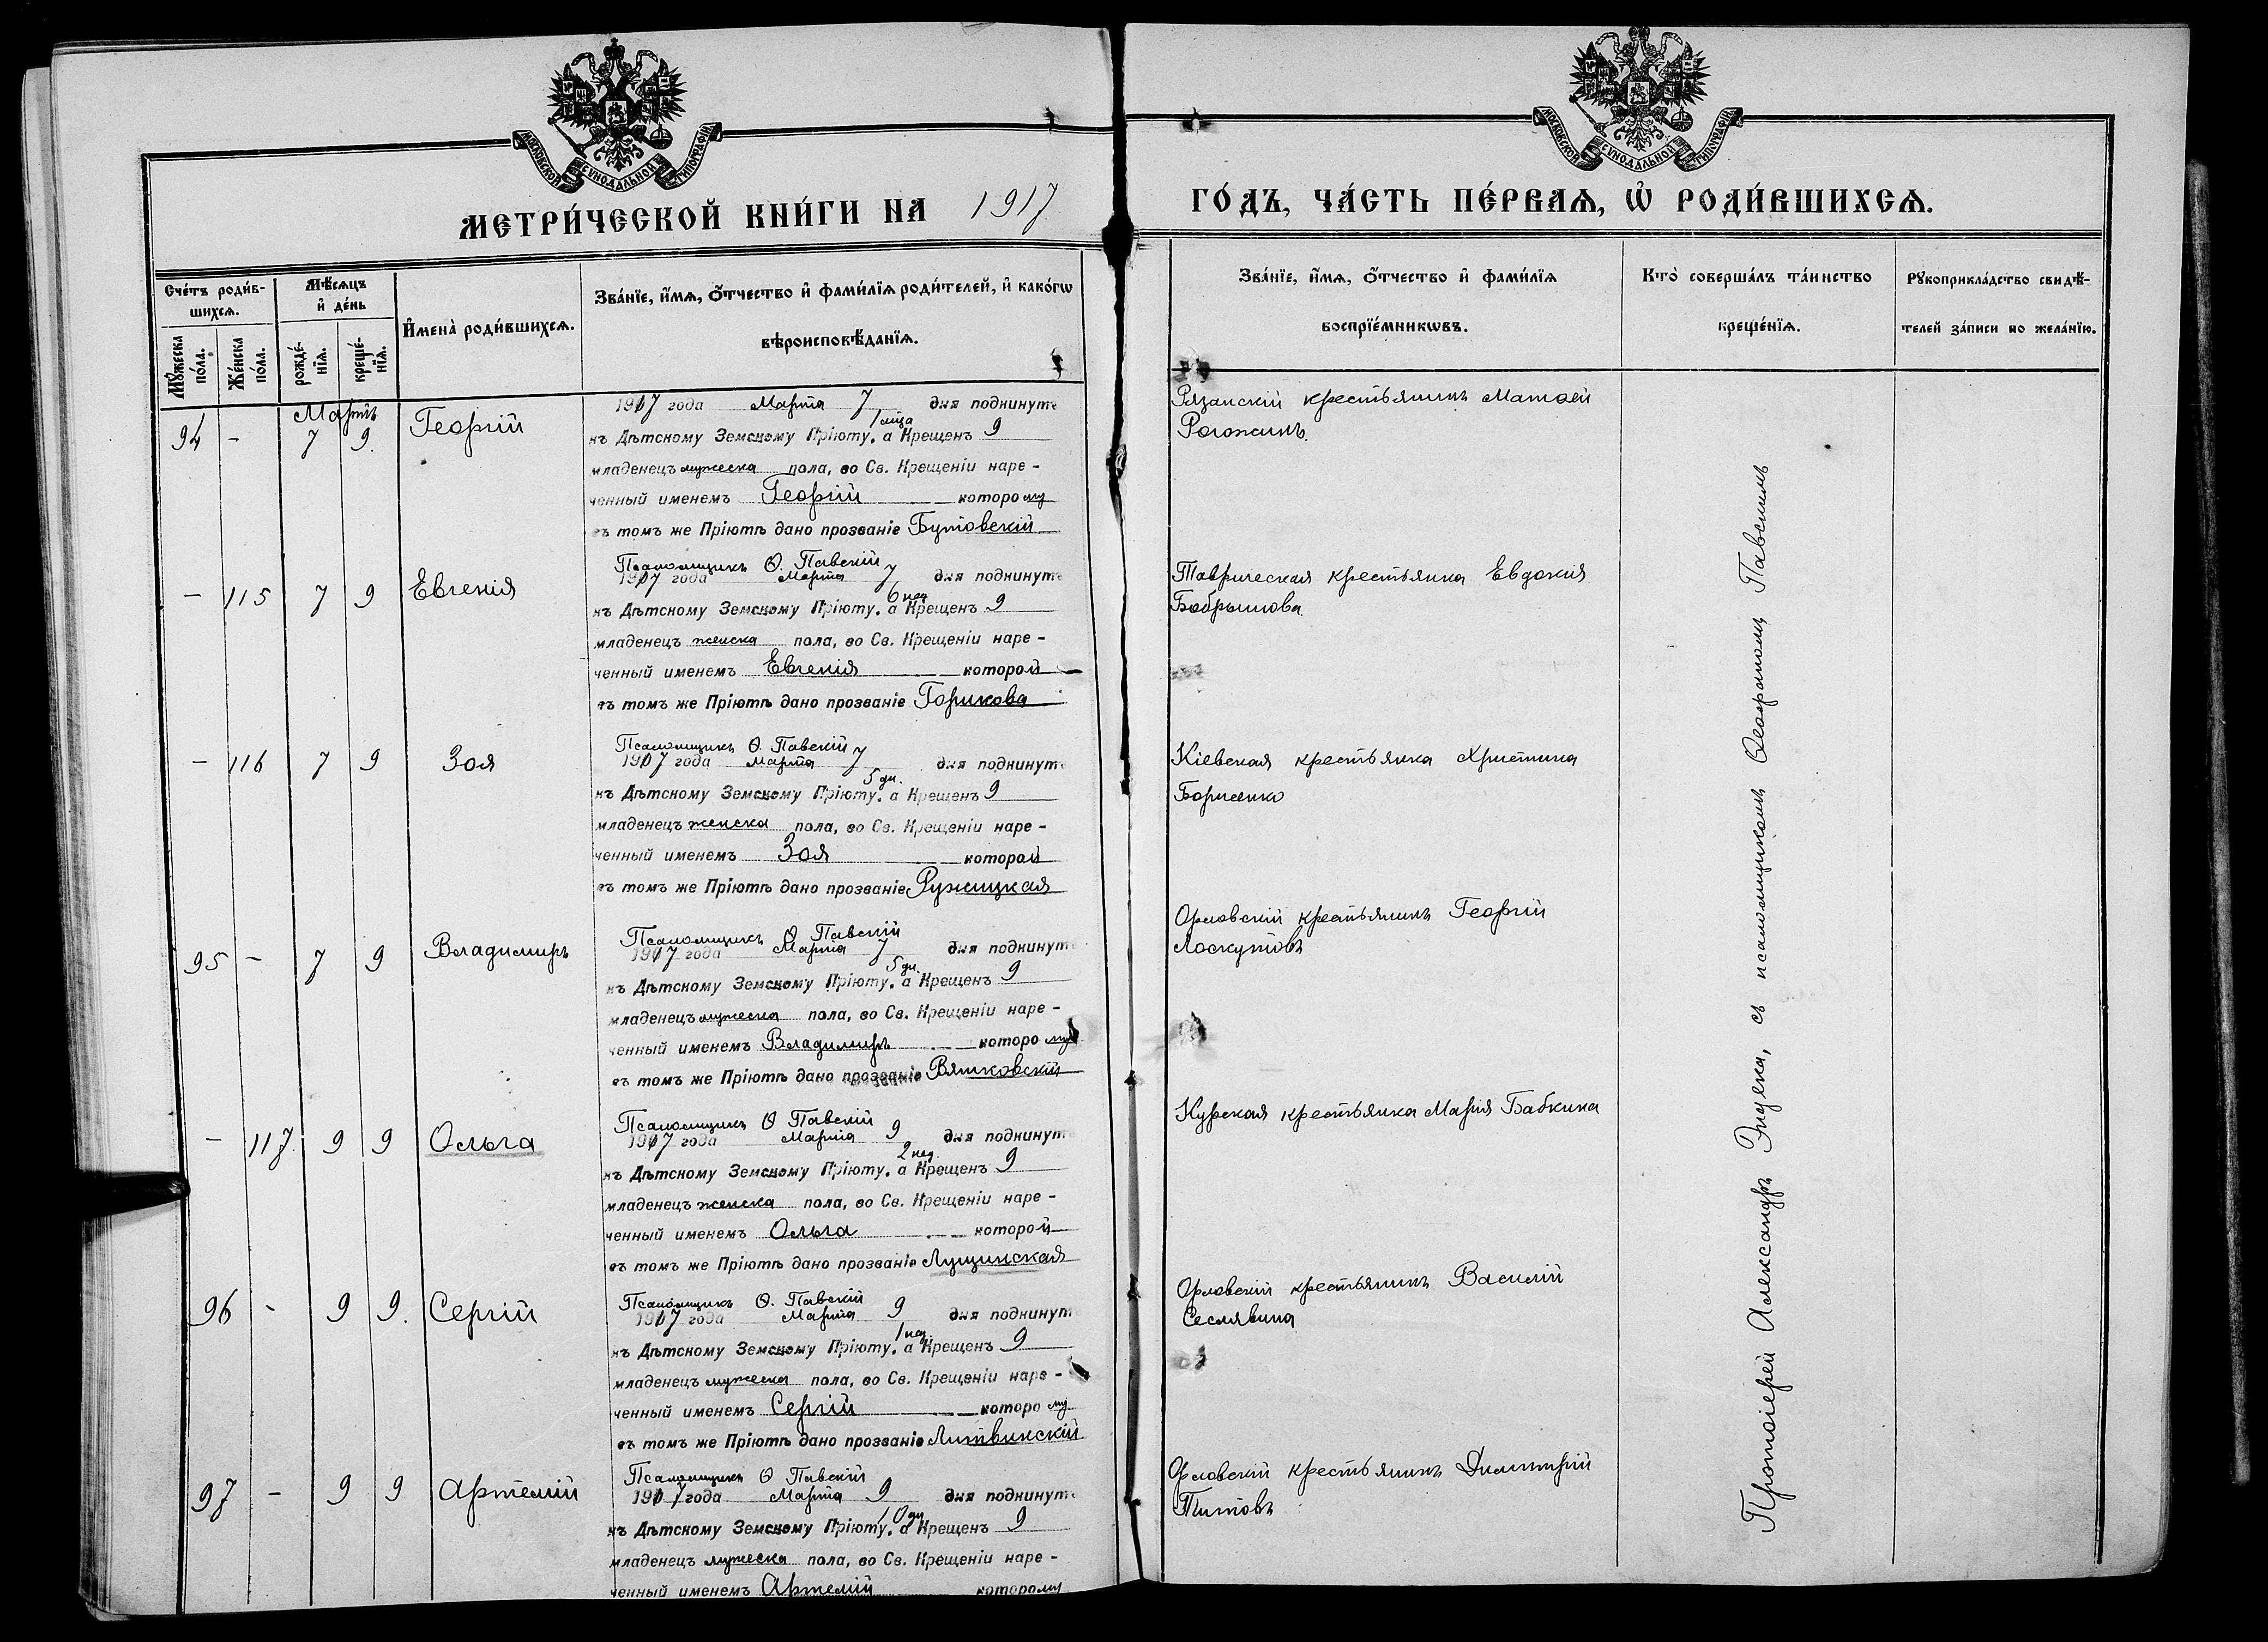 МОСКОВСКОЙ СѴНОДАЛЬНОЙ ТИПОГРАФІИ
МОСКОВСКОЙ СѴНОДАЛЬНОЙ ТИПОГРАФІИ
МЕТРИ́ЧЕСКОЙ КНИ́ГИ НА 1917
ГО́ДЪ, ЧА́СТЬ ПЕ́РВАѦ, Ѡ҆ РОДИ́ВШИХСѦ.
Сче́тъ роди́в-
шихсѧ.
Мꙋ́жеска по́ла.
Же́нска по́ла.
Мѣ́сѧцъ
и҆ де́нь
рожде́-
нїѧ.
креще́-
нїѧ.
И҆мена̀ роди́вшихсѧ.
Зва́нїе, и҆́мѧ, ѻ҆́тчество и҆ фами́лїѧ роди́телей, и҆ како́гѡ
вѣроисповѣ́данїѧ.
Зва́нїе, и҆́мѧ, ѻ҆́тчество и҆ фами́лїѧ
воспрїе́мникѡвъ.
Кто̀ соверша́лъ та́инство
креще́нїѧ.
Рꙋкоприкла́дство свидѣ́-
телей за́писи по жела́нїю.
Мартъ
94 - 7 9. Георгій
1917 года Марта 7 дня подкинутъ
1 мца
къ Дѣтскому Земскому Пріюту. а Крещенъ 9
младенецъ мужеска пола, во Св. Крещеніи наре-
ченный именемъ Георгій которому
въ томъ же Пріютѣ дано прозваніе Бутовскій
Псаломщикъ Ѳ. Павскій
Рязанскій крестьянинъ Матѳей
Рогожинъ.
- 115 7 9 Евгенія
1917 года Марта 7 дня подкинутъ
6 нед
къ Дѣтскому Земскому Пріюту. а Крещенъ 9
младенецъ женска пола, во Св. Крещеніи наре-
ченный именемъ Евгенія которой
въ томъ же Пріютѣ дано прозваніе Горикова
Псаломщикъ Ѳ. Павскій
Таврическая крестьянка Евдокія
Бобрышова.
- 116 7 9 Зоя
1917 года Марта 7 дня подкинутъ
5 дн.
къ Дѣтскому Земскому Пріюту. а Крещенъ 9
младенецъ женска пола, во Св. Крещеніи наре-
ченный именемъ Зоя которой
въ томъ же Пріютѣ дано прозваніе Ружицкая
Псаломщикъ Ѳ Павскій
Кіевская крестьянка Христина
Борисенко
95 - 7 9 Владимиръ
1917 года Марта 7 дня подкинутъ
5 дн.
къ Дѣтскому Земскому Пріюту. а Крещенъ 9
младенецъ мужеска пола, во Св. Крещеніи наре-
ченный именемъ Владимиръ которому
въ томъ же Пріютѣ дано прозваніе Вятковскій
Псаломщикъ Ѳ Павскій
Орловскій крестьянинъ Георгій
Лоскутовъ
- 117. 9 9 Ольга
1917 года Марта 9 дня подкинутъ
2 нед.
къ Дѣтскому Земскому Пріюту. а Крещенъ 9
младенецъ женска пола, во Св. Крещеніи наре-
ченный именемъ Ольга которой
въ томъ же Пріютѣ дано прозваніе Лущинская
Псаломщикъ Ѳ. Павскій
Курская крестьянка Марія Бабкина
96 - 9 9. Сергій
1917 года Марта 9 дня подкинутъ
1 нед.
къ Дѣтскому Земскому Пріюту. а Крещенъ 9
младенецъ мужеска пола, во Св. Крещеніи наре-
ченный именемъ Сергій которому
въ томъ же Пріютѣ дано прозваніе Литвинскій
Псаломщикъ Ѳ Павскій
Орловскій крестьянинъ Василій
Сеслявина
97 - 9 9 Артемій
1917 года Марта 9 дня подкинутъ
10 дн
къ Дѣтскому Земскому Пріюту. а Крещенъ 9
младенецъ мужеска пола, во Св. Крещеніи наре-
ченный именемъ Артемій которому
Орловскій крестьянинъ Димитрій
Титовъ
Протоіерей Александръ Эндека, съ псаломщикомъ Ѳеофаномъ Павскимъ